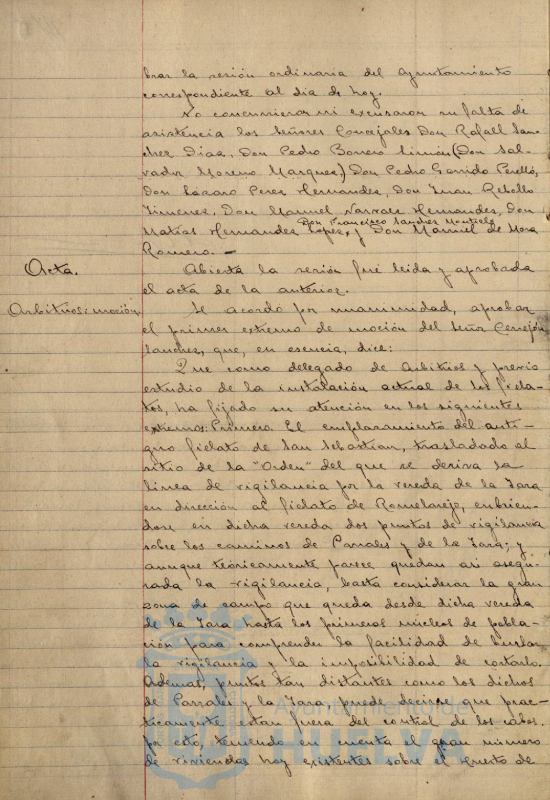 brar la sesión ordinaria del Ayuntamiento
correspondiente al dia de hoy.
No concurrieron ni excusaron su falta de
asistencia los Señores Concejales Don Rafael San-
chez Diaz, Don Pedro Borrero Limón (Don Sal-
vador Moreno Marquez) Don Pedro Garrido Perelló,
Don Lazaro Perez Hernandez, Don Juan Rebollo
Jimenez, Don Manuel Narvaez Hernandez, Don
Don Francisco Sanchez Montiel
Matias Hernandez Lopez, y Don Manuel de Mora
Romero.—
Acta.
Abierta la sesión fué leida y aprobada
el acta de la anterior.
Arbitrios: moción.
Se acordó por unanimidad, aprobar
el primer extremo de moción del Señor Concejal
Sanchez, que, en esencia, dice:
Que como delegado de Arbitrios y previo
estudio de la instalación actual de los fiela-
tos, ha fijado su atención en los siguientes
extremos: Primero. El emplazamiento del anti-
guo fielato de San Sebastian, trasladado al
sitio de la "Orden" del que se deriva la
linea de vigilancia por la vereda de la Jara
en dirección al fielato de Romelarejo, cubrien-
dose en dicha vereda dos puntos de vigilancia
sobre los caminos de Parrales y de la Jara; y
aunque teóricamente parece quedan asi asegu-
rada la vigilancia, basta considerar la gran
zona de campo que queda desde dicha vereda
de la Jara hasta los primeros núcleos de pobla-
ción para comprender la facilidad de burlar
la vigilancia y la imposibilidad de cortarlo.
Ademas, puntos tan distantes como los dichos
de Parrales y la Jara, puede decirse que prac-
ticamente estan fuera del control de los cabos.
por esto, teniendo en cuenta el gran número
de viviendas hoy existentes sobre el Puerto de
Ayuntamiento de
HUELVA